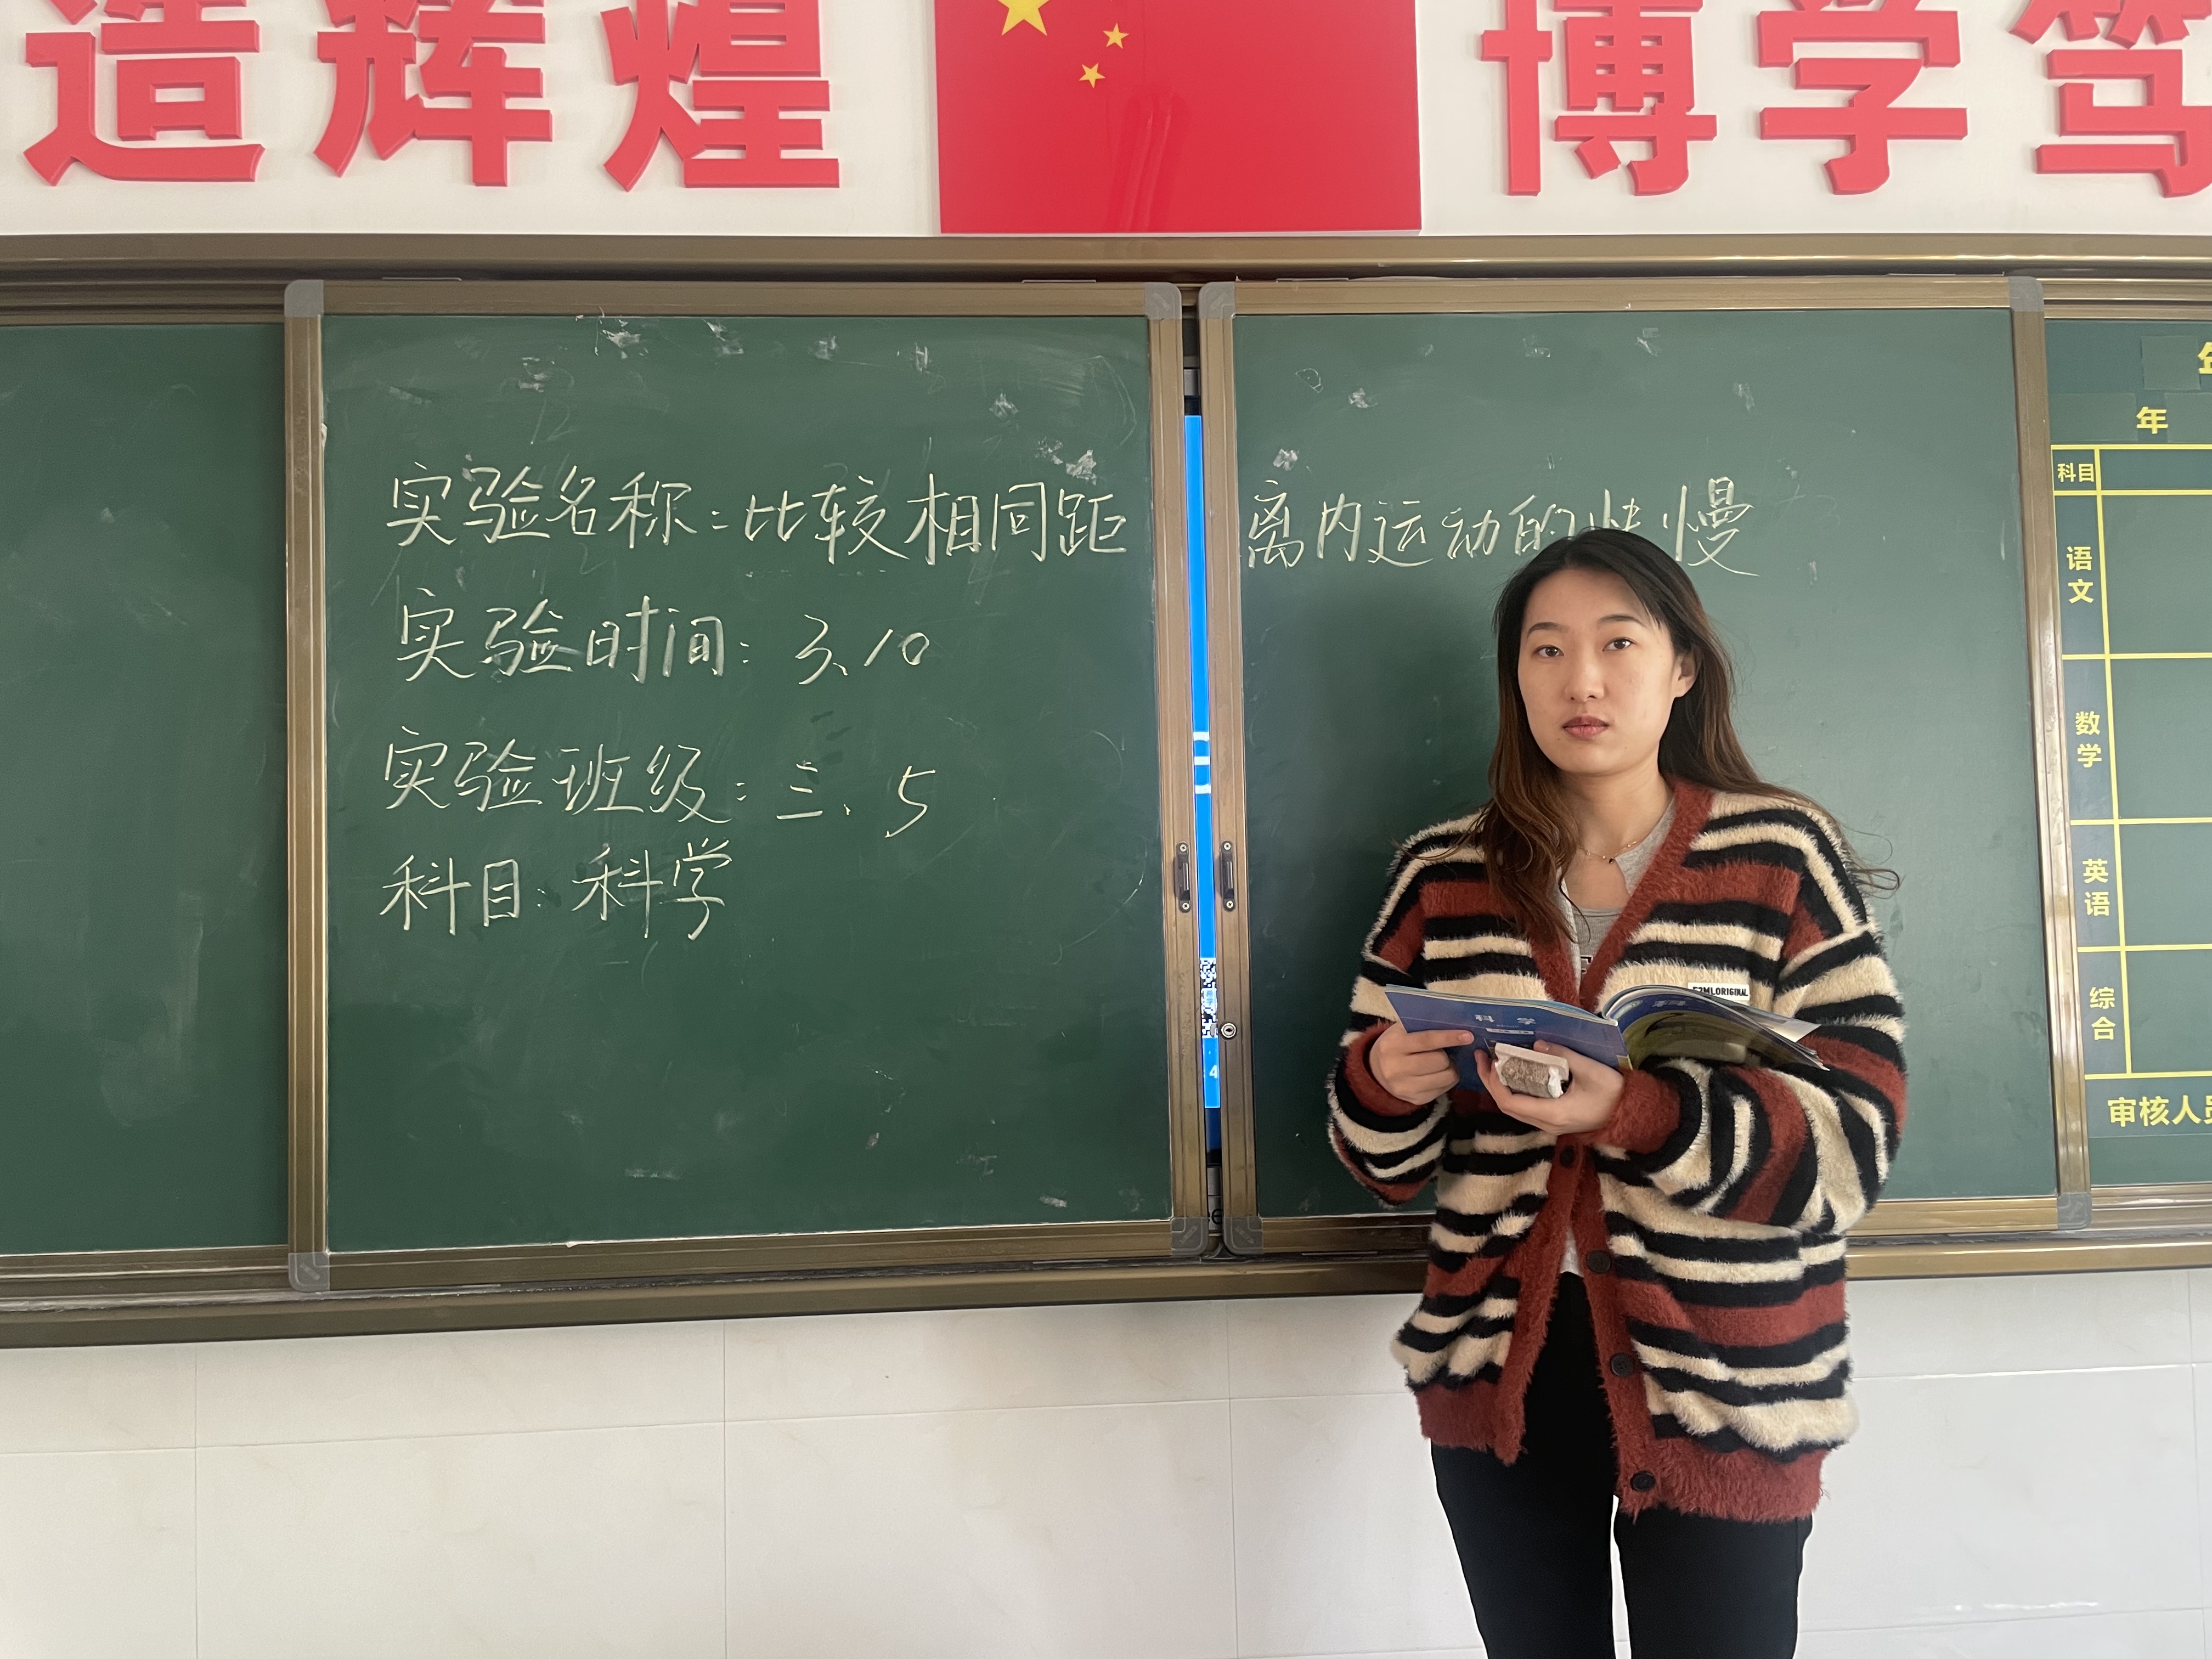 造辉煌
博学笃
实验名称:比较相同距离内运动的快慢
实验时间:3、10
实验班级:三、5
科目:科学
年
科目
语文
数学
英语
综合
审核人员
科学
ORIGINAL
4